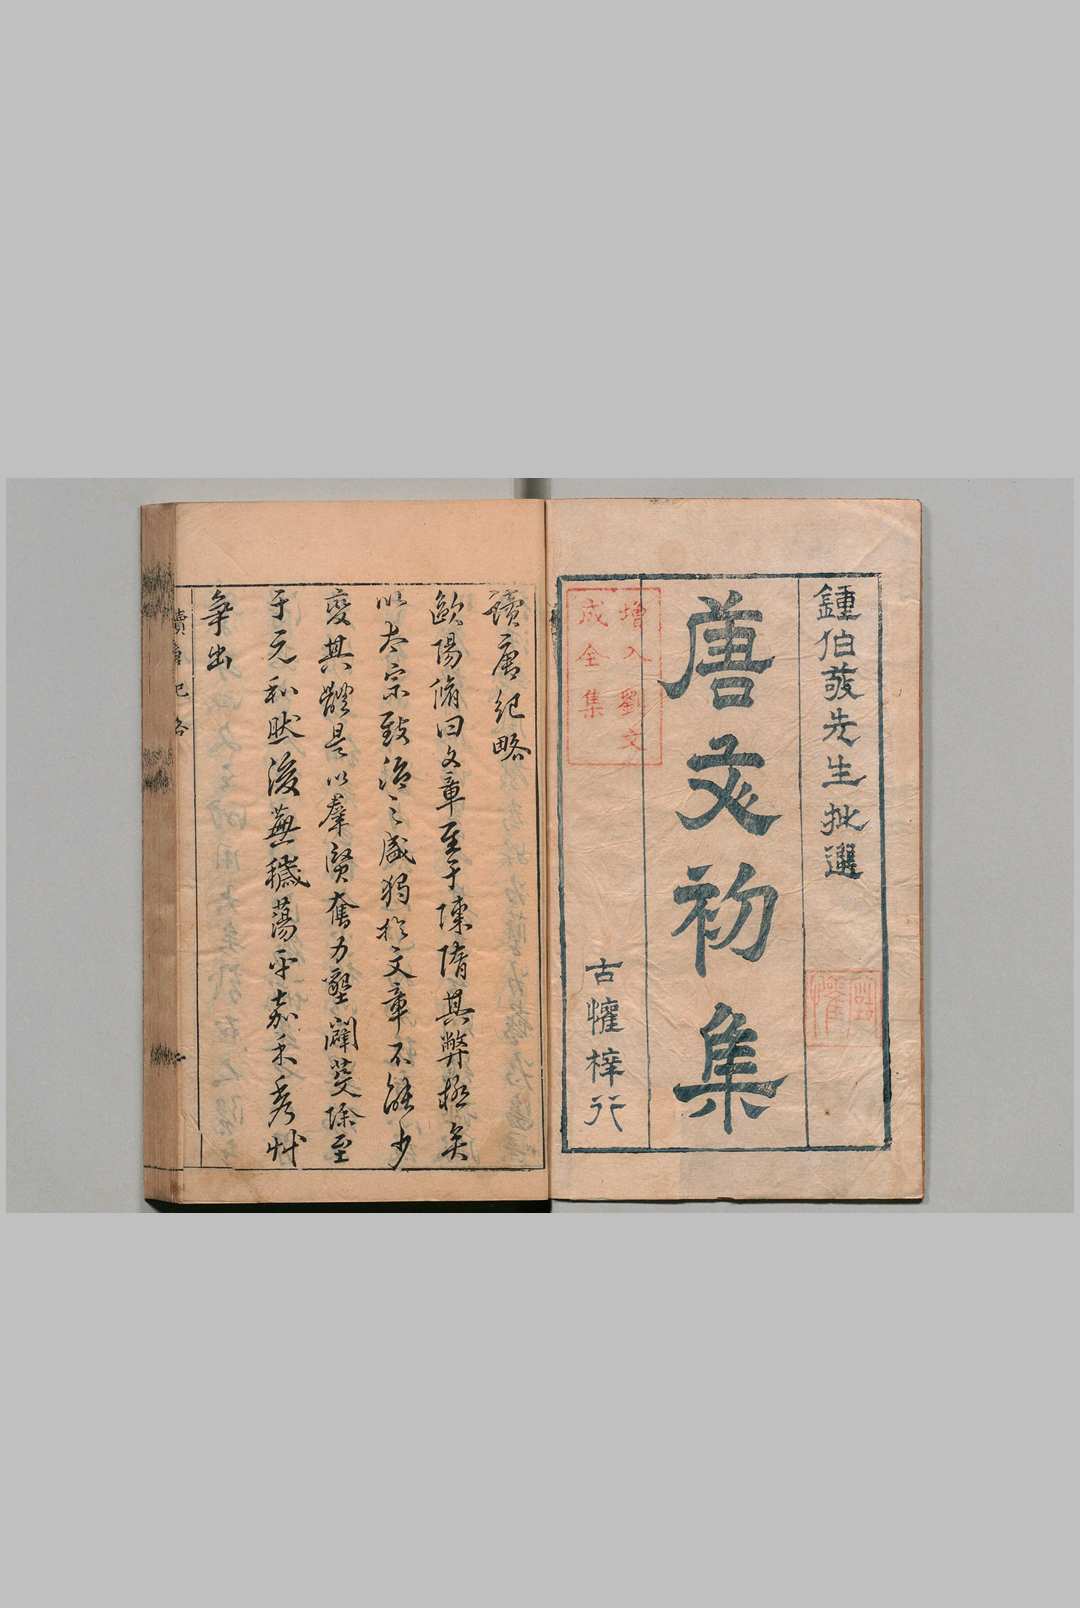 鍾伯敬先生批選
唐文初集
增入劉文
成全集
古懽梓行
讀唐紀略
歐陽脩曰文章至于陳隋其弊極矣
以太宗致治之盛獨於文章不能少
變其體是以羣賢奮力墾闢芟除至
于元和然後蕪穢蕩平嘉禾秀艸
争出
讀唐紀略